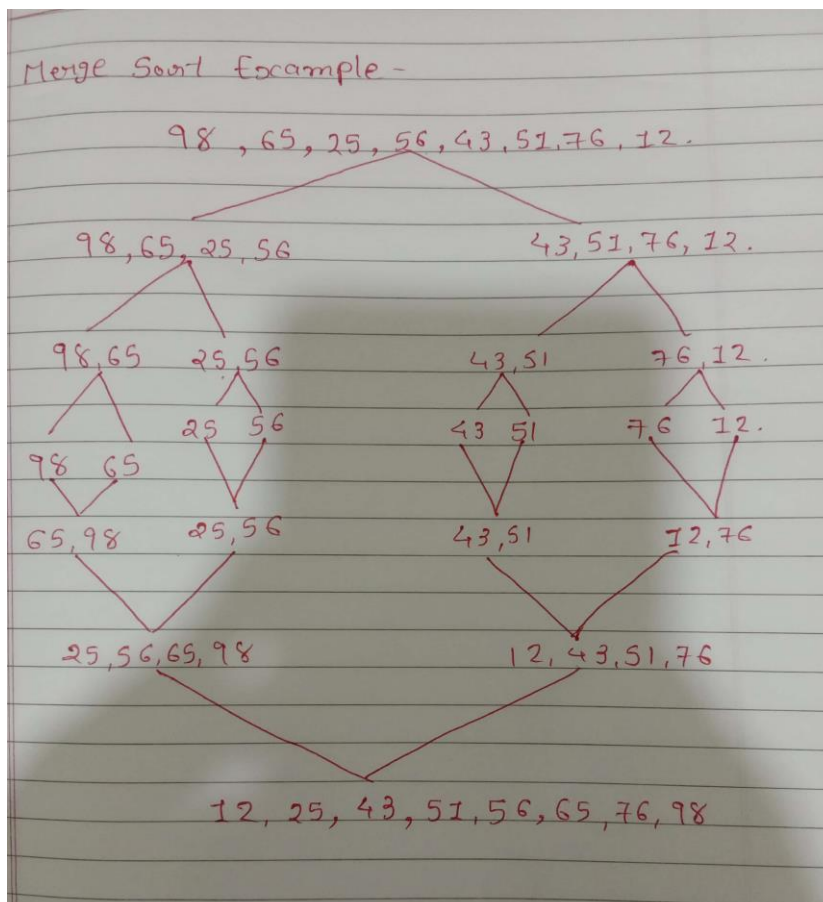 Merge Sort Example -
98 , 65, 25, 56, 43, 51, 76, 12.
98, 65, 25, 56 43, 51, 76, 12.
98, 65 25, 56 43, 51 76, 12.
25 56 43 51 76 12.
98 65
65, 98 25, 56 43, 51 12, 76
25, 56, 65, 98 12, 43, 51, 76
12, 25, 43, 51, 56, 65, 76, 98